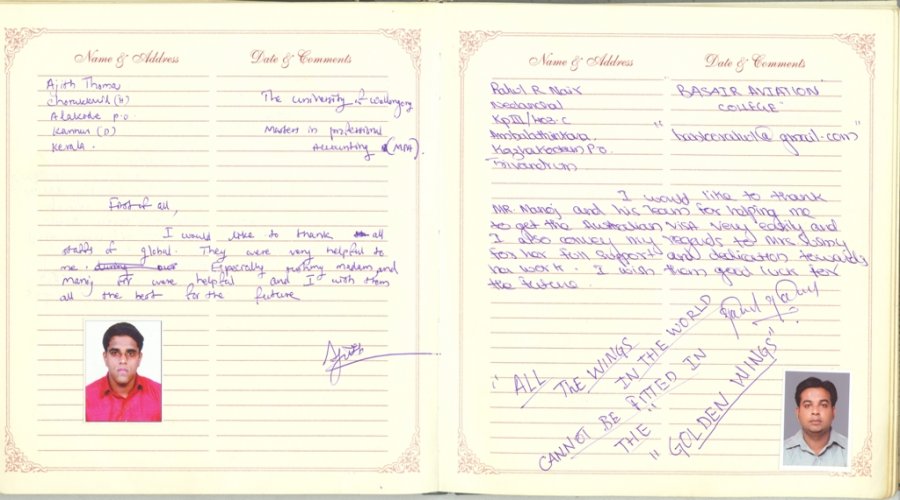 Name & Address
Date & Comments
Ajith Thomas
(H)
Alakode P.O
Kannur (D)
Kerala.
The university of wollongong
Masters in professional
Accounting (MPA).
First of all,
I would like to thank all
staffs of global. They were very helpful to
me. Especially madam and
Manoj sir were helpful and I wish them
all the best for the future
Ajith
Name & Address
Date & Comments
Rahul R Nair
Nedancral
KP III/403.C
Ambalathinkara
Kazhakootam P.O.
Trivandrum
BASAIR AVIATION
COLLEGE"
@gmail.com"
I would like to thank
MR. Manoj and his Team for helping me
to get the Australian visa very easily and
I also convey my regards to Mrs
for her full support and dedication towards
her work. I wish them good luck for
the future.
"ALL THE WINGS
IN THE WORLD
CANNOT BE FITTED IN
THE "GOLDEN WINGS"